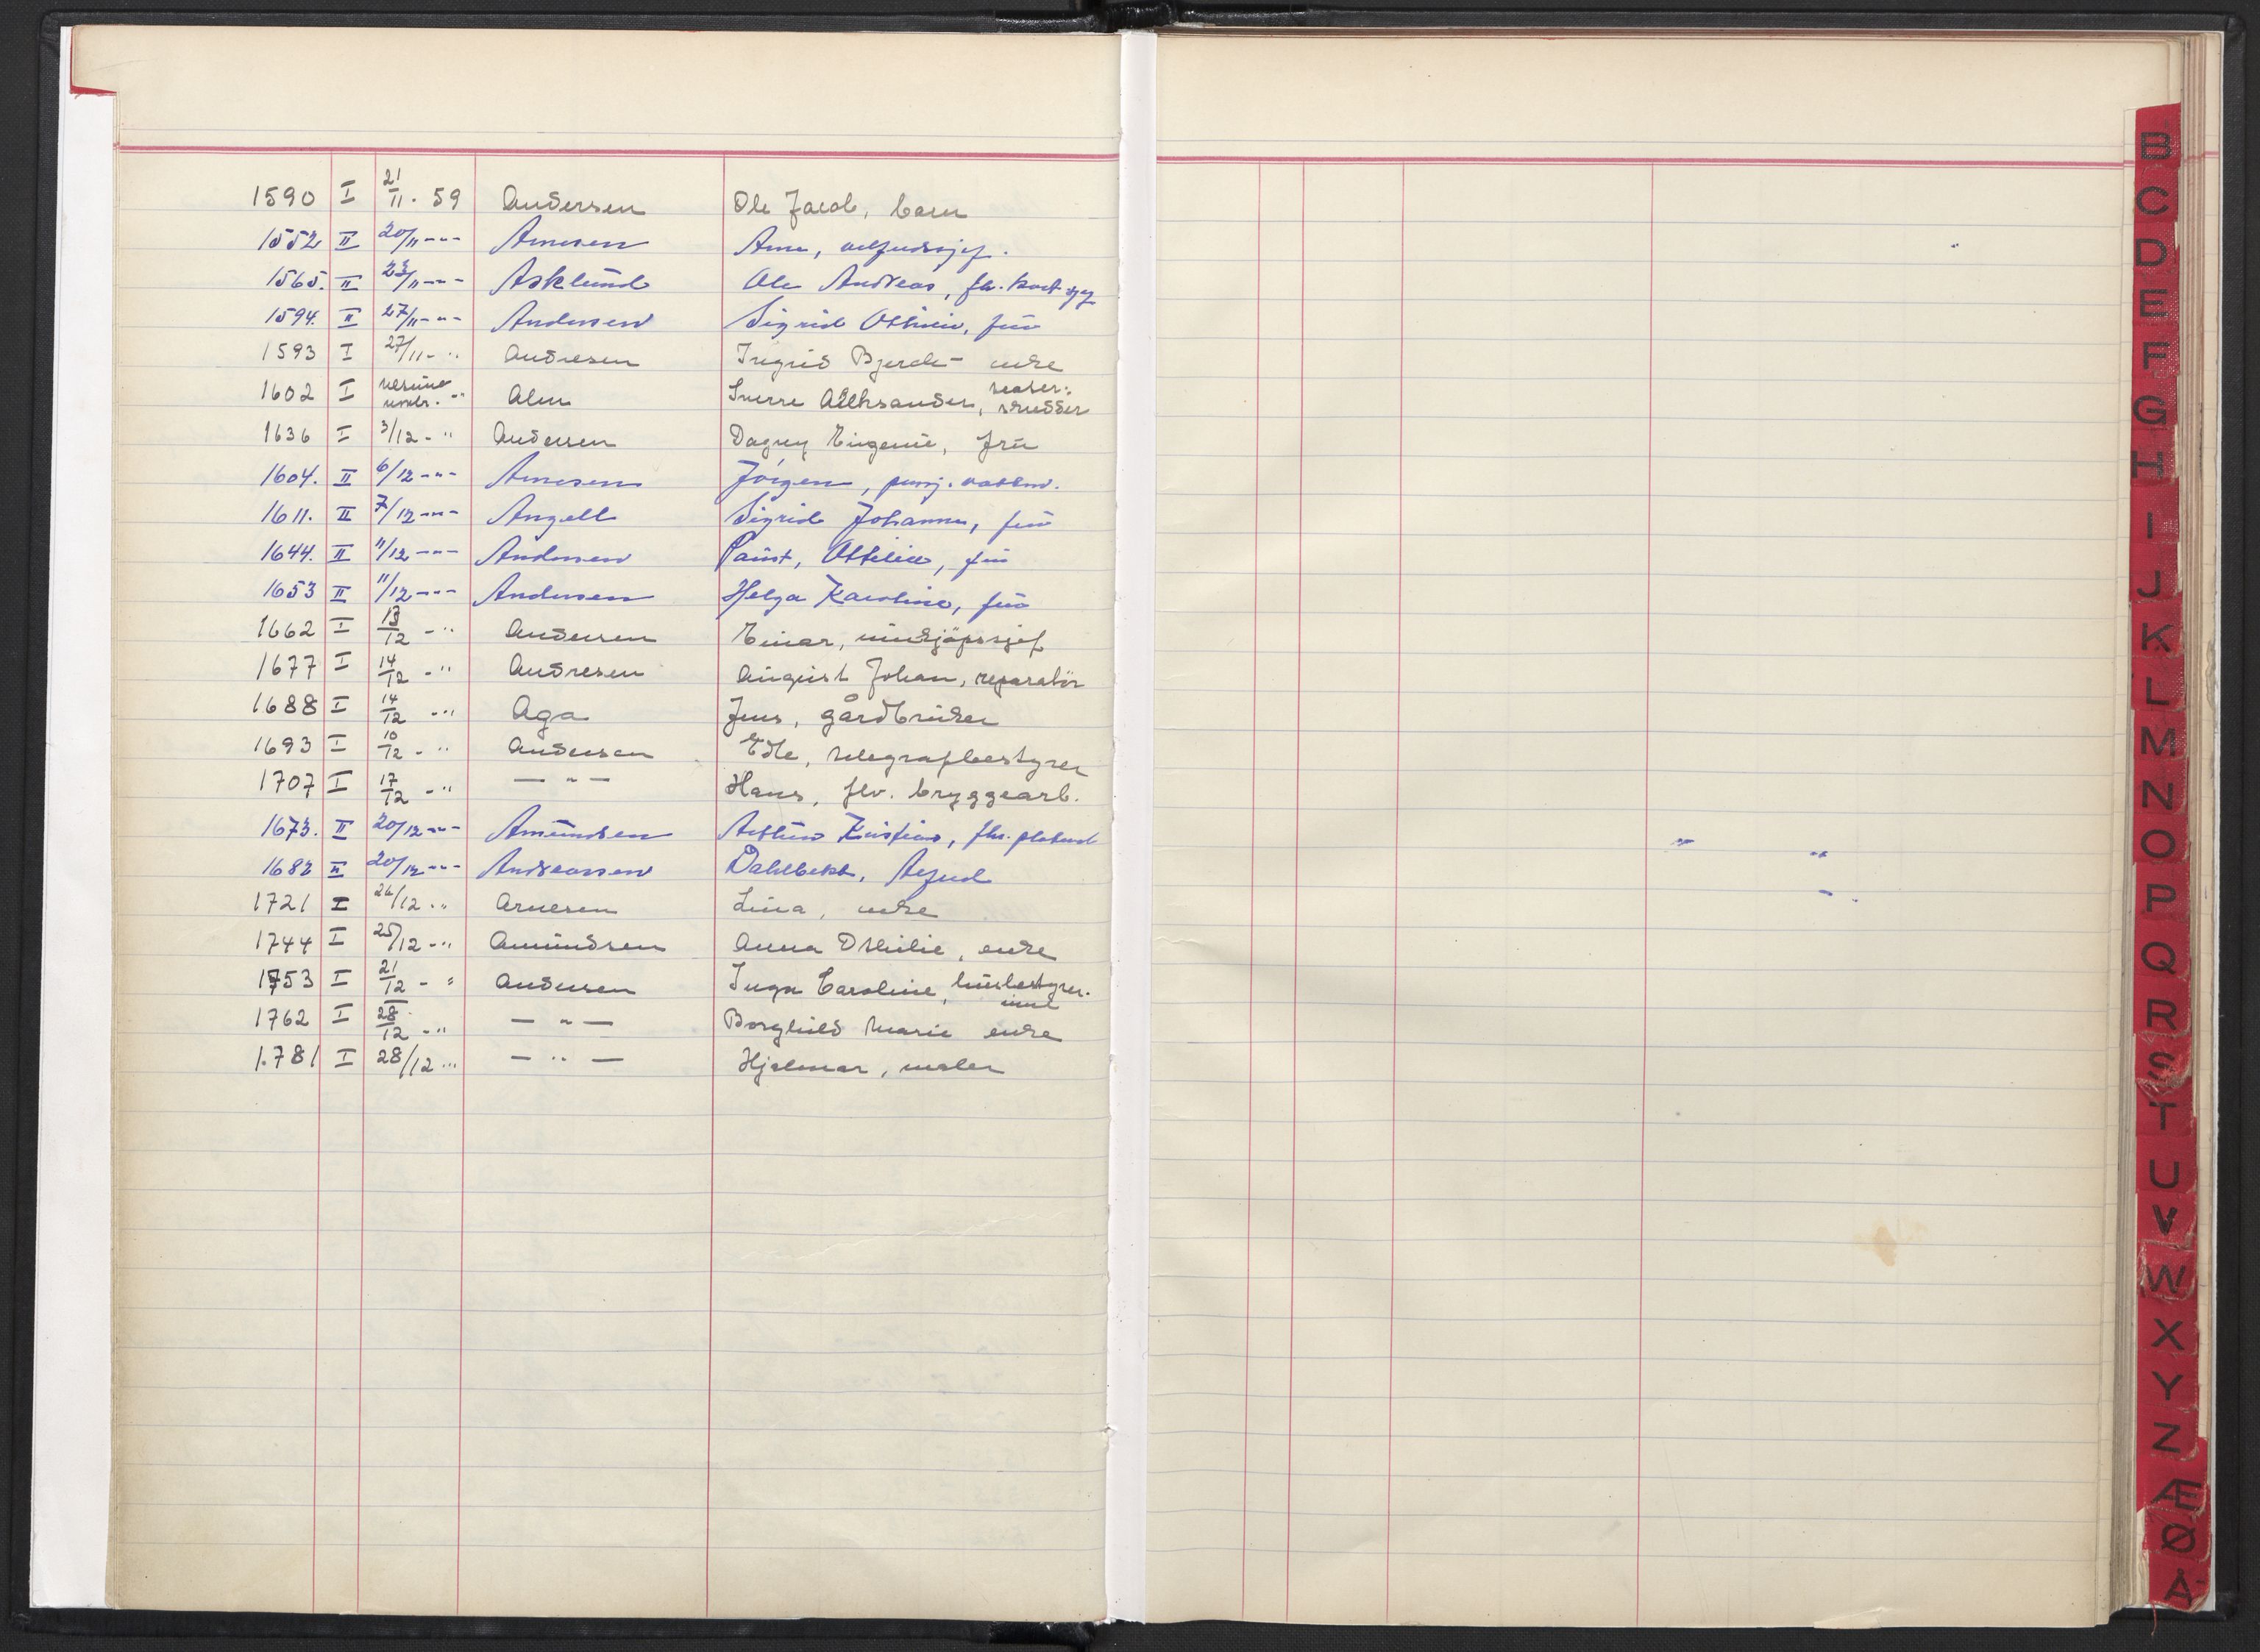 1590 I 21/11. 59 Andersen Ole Jacob, barn
1552 II 20/11 -"- Arnesen Arne,
1565. II 23/11 -"- Asklund Ole Andreas, fhv.
1594. II 27/11 -"- Andersen Sigrid, frü
1593 I 27/11 - " Andresen Ingrid Bjerde- enke
1602 I " Alm Sverre Alleksander, skredder
1636 I 3/12 - " Andersen Dagny Eugenie, frü
1604. II 6/12 -"- Arnesen Jörgen, pensj.
1611. II 7/12 -"- Angell Sigrid Johanne, frü
1644. II 11/12 -"- Andersen Paüst, Ottilie, frü
1653 II 11/12 -"- Andersen Helga Karoline, frü
1662 I 13/12 - " Andersen Einar, innkjöpssjef
1677 I 14/12 - " Andresen Aügüst Johan, reparatör
1688 I 14/12 - " Aga Jens, gårdbrüker
1693 I 10/12 - " Andersen Edle, telegrafbestyrer
1707 I 17/12 - " — " — Hans, fhv. bryggearb.
1673. II 20/12 -"- Amündsen Kristian, fhv.
1682 II 20/12 -"- Andreassen Dahlbekk,
1721 I 26/12 " Arnesen Lina, enke
1744 I 25/12 - " Amündsen Anna Othilie, enke
1753 I 21/12 - " Andersen Inga Caroline, hüsbestyrer-
inne
1762 I 28/12 - " — " — Borghild Marie enke
1.781 I 28/12 " — " — Hjalmar, maler
B
C
D
E
F
G
H
I
J
K
L
M
N
O
P
Q
R
S
T
U
V
W
X
Y
Z
Æ
Ø
Å